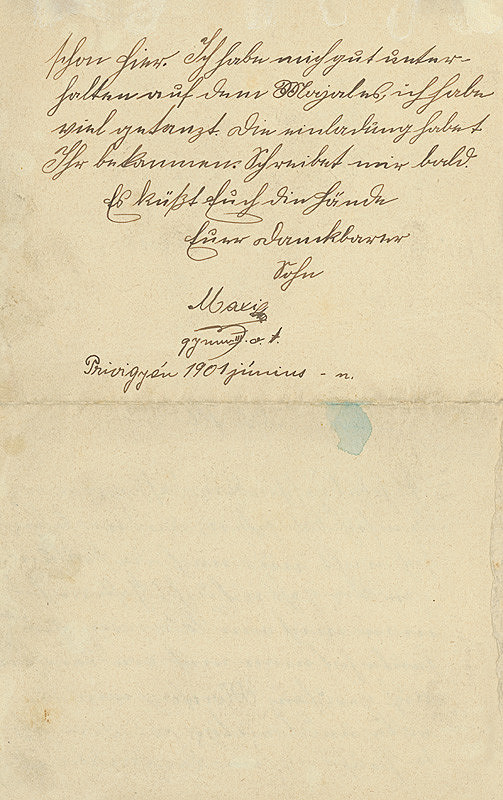 schon hier. Ich habe mich gut unter-
halten auf dem Majales, ich habe
viel getanzt. Die einladung habet
Ihr bekommen. Schreibet mir bald.
Es küßt Euch die Hände
Euer Danckbarer
Sohn
Maxi
gymn. III. o. t.
Privigyén 1901 június - n.